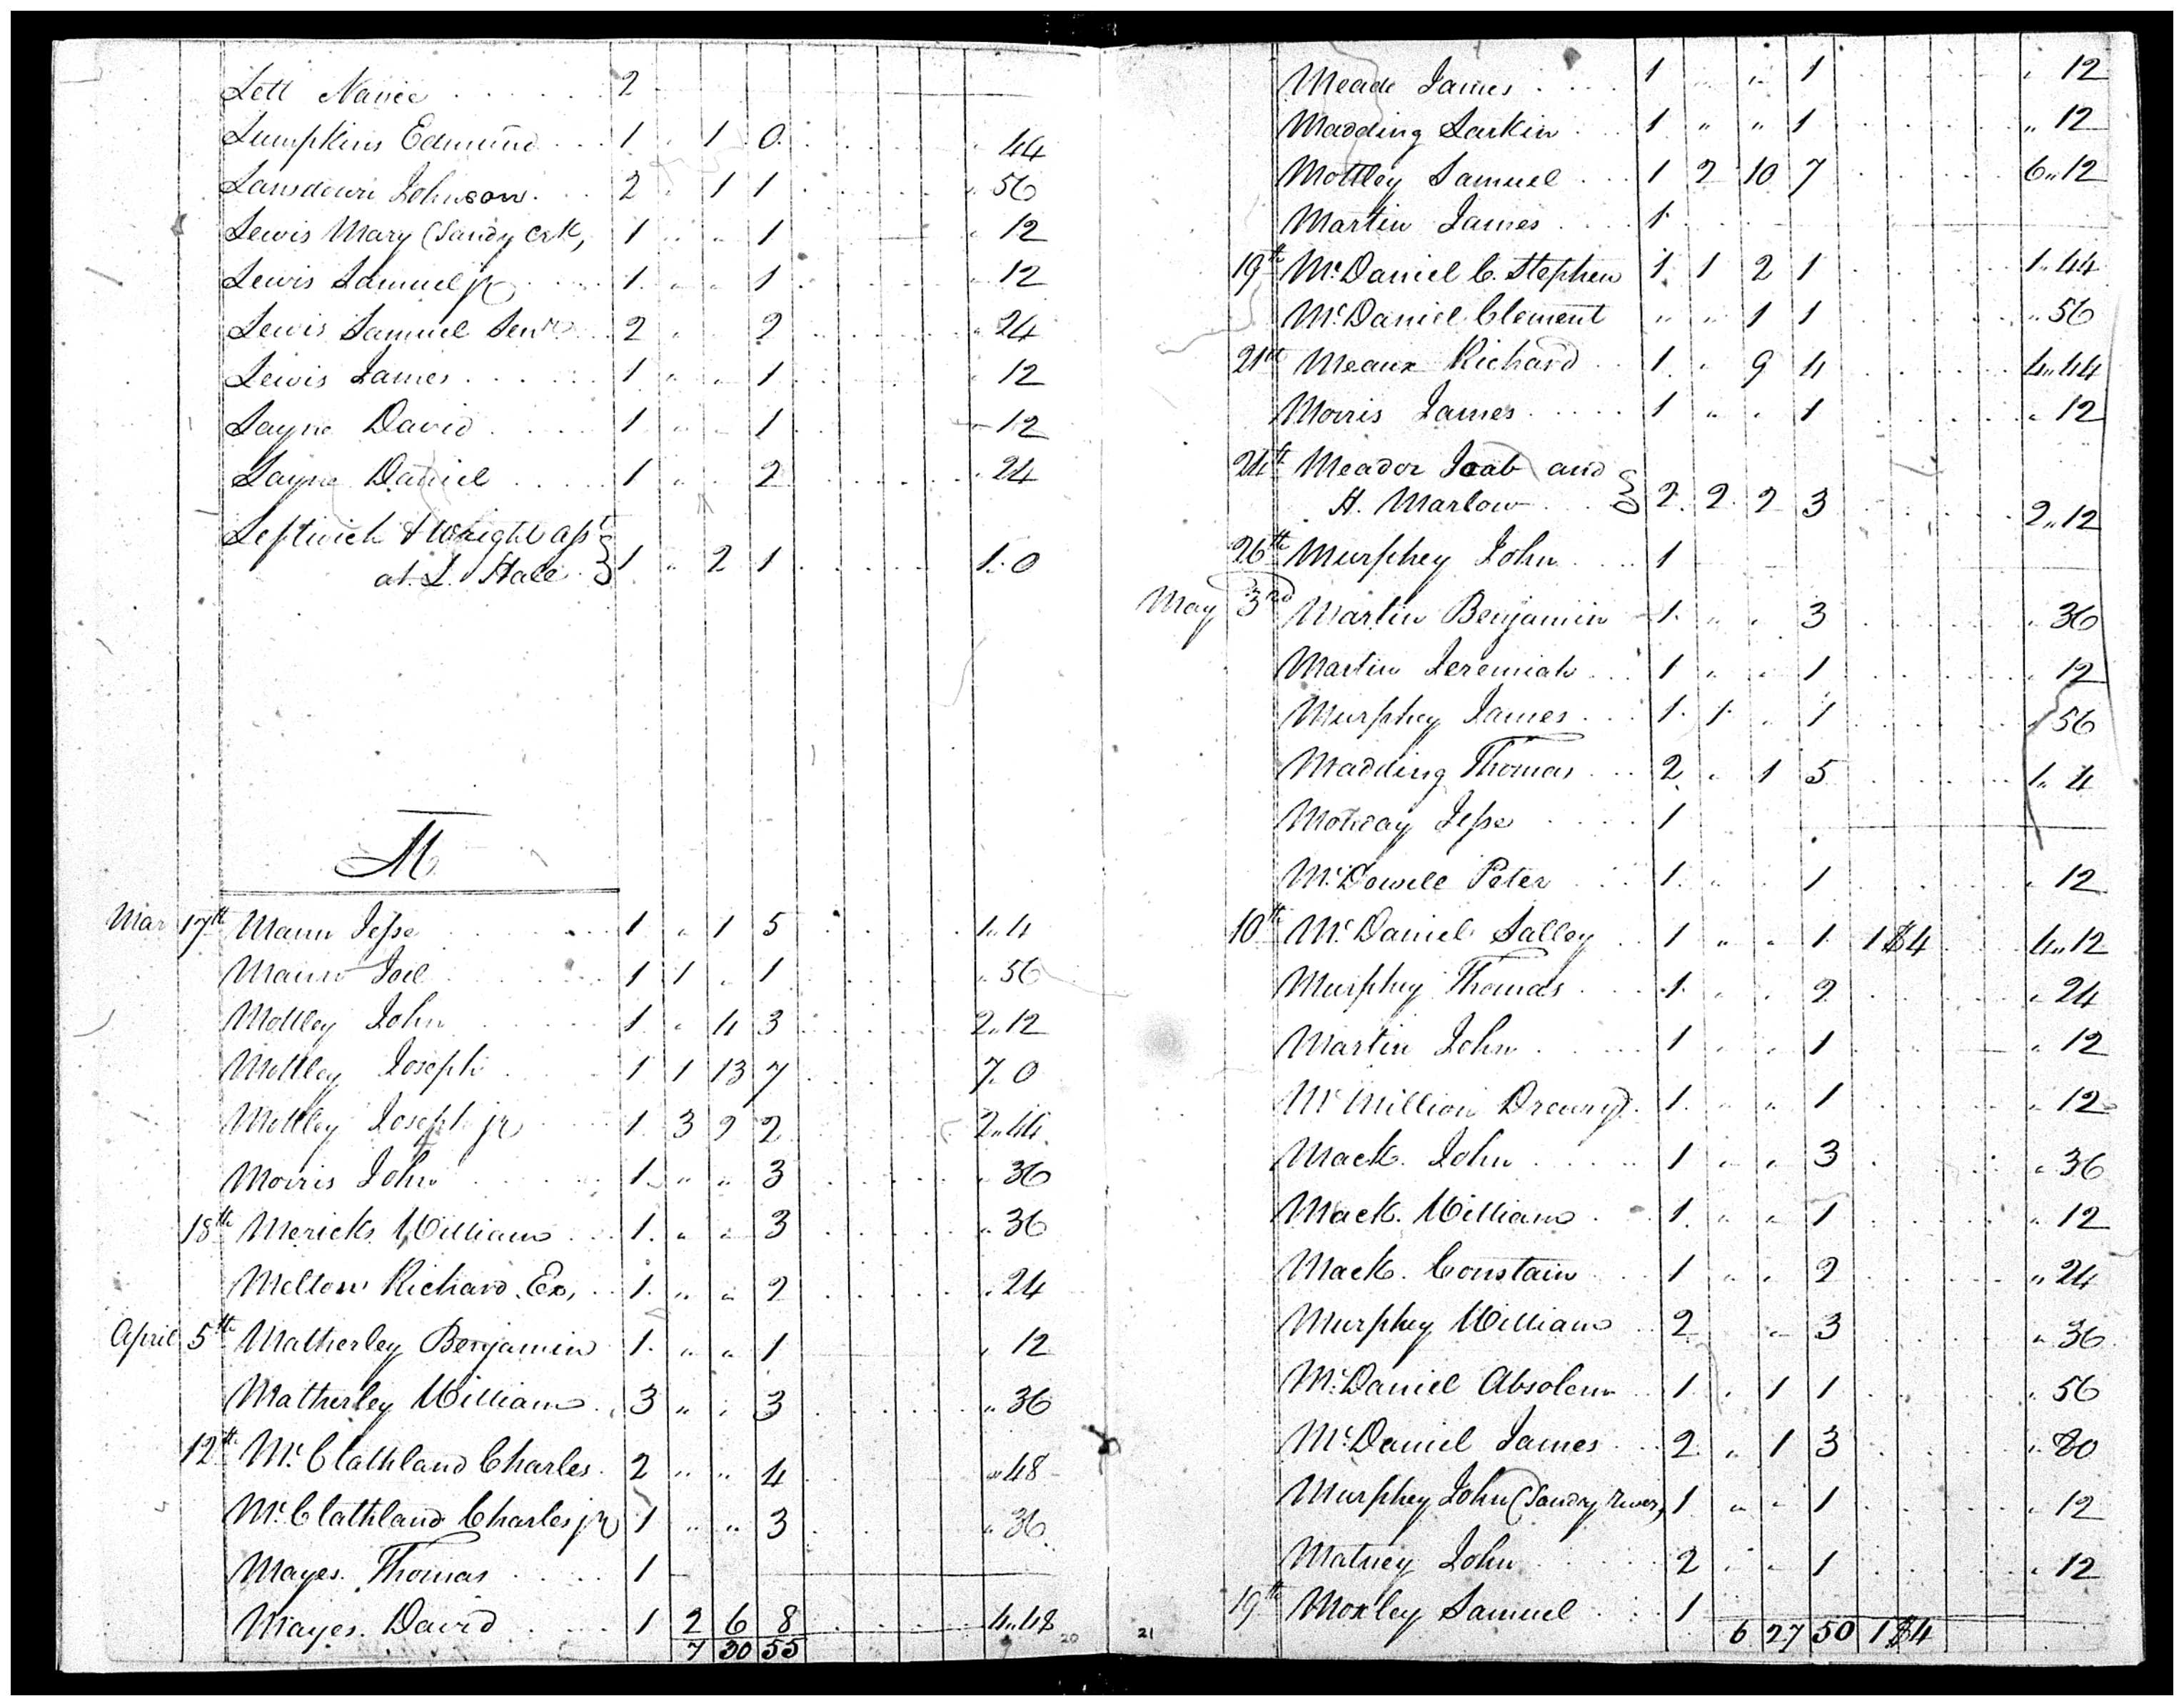 Lett Nancie 2
Lumpkins Edmund 1 " 1 0 " 44
Lansdown Johnson 2 " 1 1 " 56
Lewis Mary (Sandy Crk, 1 " " 1 " 12
Lewis Samuel jr 1 " " 1 " 12
Lewis Samuel Senr 2 " " 2 " 24
Lewis James 1 " " 1 " 12
Layne David 1 " " 1 " 12
Layne Daniel 1 " " 2 " 24
Leftwich & Wright
at L. 1 " 2 1 1. 0
M
Mar 17th Mann Jesse 1 " 1 5 1" 4
Mann Joel 1 1 " 1 " 56
Mottley John 1 " 4 3 2" 12
Mottley Joseph 1 1 13 7 7. 0
Mottley Joseph jr 1 3 2 2 2" 44
Morris John 1 " " 3 " 36
18th Mericks William 1 " " 3 " 36
Melton Richard Ex, 1 " " 2 " 24
April 5th Matherley Benjamin 1 " " 1 " 12
Matherley William 3 " " 3 " 36
12th Mc Clathland Charles 2 " " 4 " 48
Mc Clathland Charles jr 1 " " 3 " 36
Mayes Thomas 1
Mayes David 1 2 6 8 4" 48
7 30 55
20
Meade James 1 " " 1 " 12
Madding Larkin 1 " " 1 " 12
Mottley Samuel 1 2 10 7 6" 12
Martin James 1
19th McDaniel C. Stephen 1 1 2 1 1" 44
McDaniel Clement " " 1 1 " 56
21st Meaux Richard 1 " 9 4 4" 44
Morris James 1 " " 1 " 12
24th Meador Joab and
H. Marlow 2 2 2 3 2" 12
26th Murphey John 1
May 3rd Martin Benjamin 1 " " 3 " 36
Martin Jeremiah 1 " " 1 " 12
Murphey James 1 1 " 1 " 56
Madding Thomas 2 " 1 5 1" 4
Motley Jesse 1
McDowell Peter 1 " " 1 " 12
10th McDaniel Salley 1 " " 1 1 $4 4" 12
Murphey Thomas 1 " " 2 " 24
Martin John 1 " " 1 " 12
McMillion Drewry 1 " " 1 " 12
Mack John 1 " " 3 " 36
Mack William 1 " " 1 " 12
Mack Constain 1 " " 2 " 24
Murphey William 2 " 3 " 36
McDaniel Absolem 1 " 1 1 " 56
McDaniel James 2 " 1 3 " 80
Murphey John (Sandy River, 1 " " 1 " 12
Matney John 2 " " 1 " 12
19th Moxley Samuel 1
21 6 27 50 1 $4